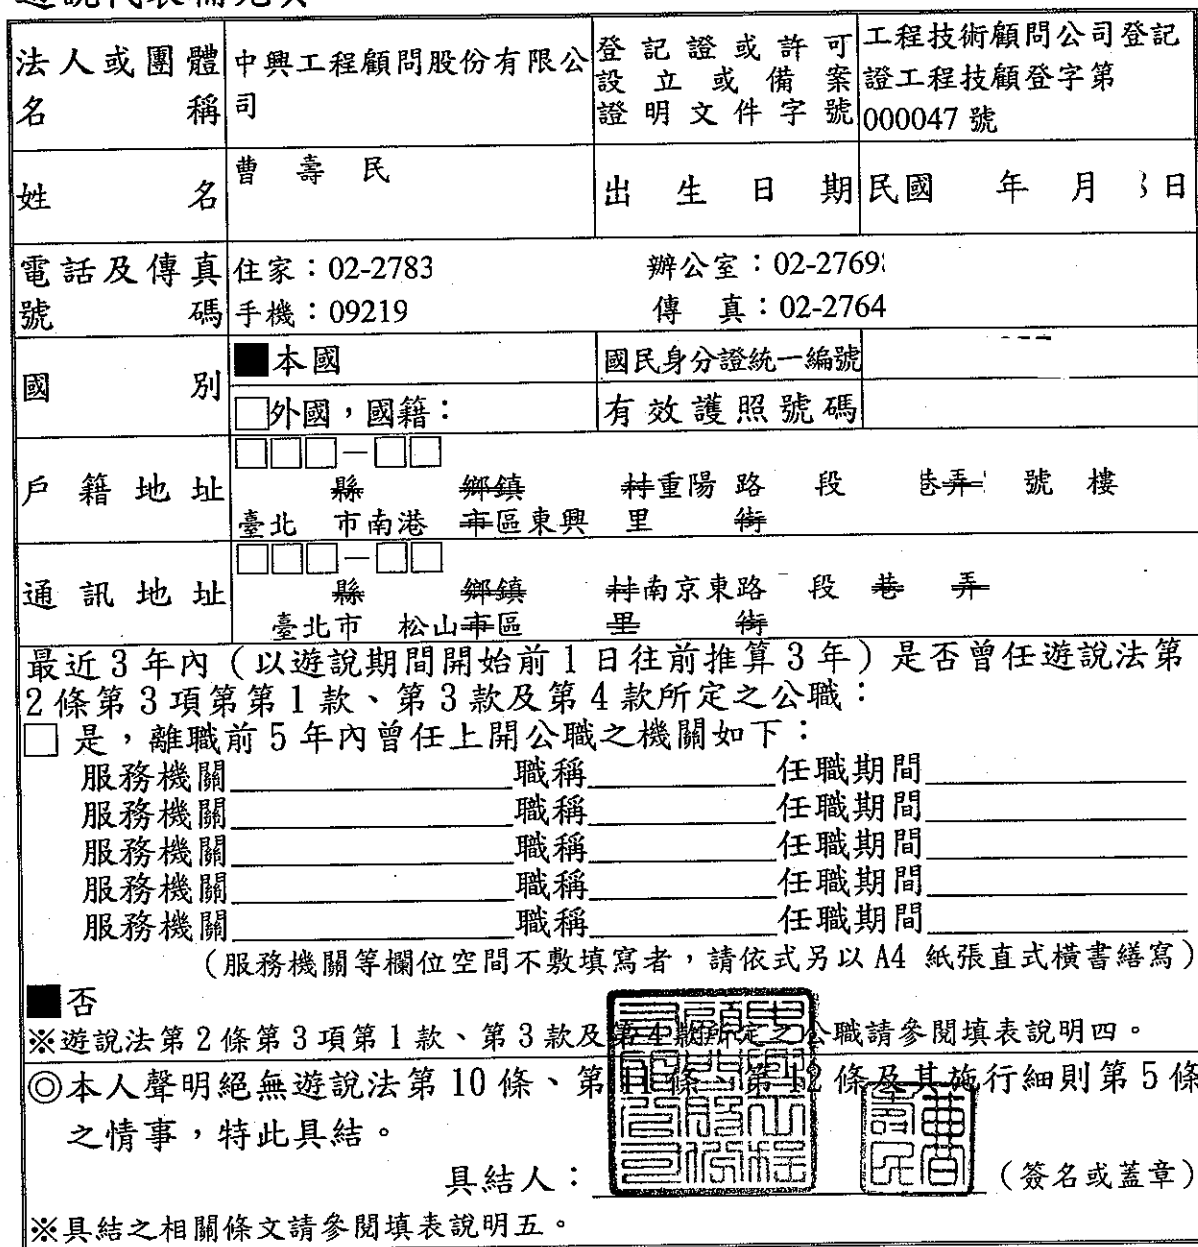 遊說代表補充頁
法人或團體名稱 中興工程顧問股份有限公司 登記證或許可設立或備案證明文件字號 工程技術顧問公司登記證工程技顧登字第000047號
姓名 曹壽民 出生日期 民國 年 月 日
電話及傳真號碼 住家：02-2783 辦公室：02-2769
手機：09219 傳真：02-2764
國別 ■本國 國民身分證統一編號
□外國，國籍： 有效護照號碼
戶籍地址 □□□－□□
縣 鄉鎮 村重陽 路 段 巷弄 號 樓
臺北 市南港 市區東興 里 街
通訊地址 □□□－□□
縣 鄉鎮 村南京東路 段 巷 弄
臺北市 松山市區 里 街
最近3年內（以遊說期間開始前1日往前推算3年）是否曾任遊說法第
2條第3項第第1款、第3款及第4款所定之公職：
□是，離職前5年內曾任上開公職之機關如下：
服務機關 職稱 任職期間
服務機關 職稱 任職期間
服務機關 職稱 任職期間
服務機關 職稱 任職期間
服務機關 職稱 任職期間
（服務機關等欄位空間不敷填寫者，請依式另以A4 紙張直式橫書繕寫）
■否
※遊說法第2條第3項第1款、第3款及第4款所定之公職請參閱填表說明四。
◎本人聲明絕無遊說法第10條、第11條、第12條及其施行細則第5條
之情事，特此具結。
具結人： （簽名或蓋章）
曹壽民
※具結之相關條文請參閱填表說明五。